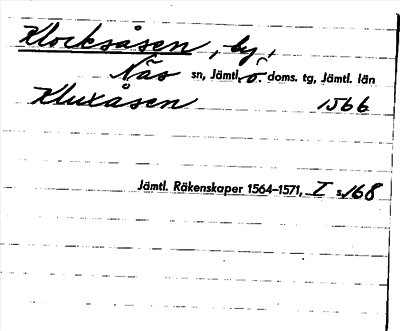 Klocksåsen, by,
Näs sn, Jämtl. ö. doms. tg, Jämtl. län
Kluxåsen 1566
Jämtl. Räkenskaper 1564-1571, I s. 168